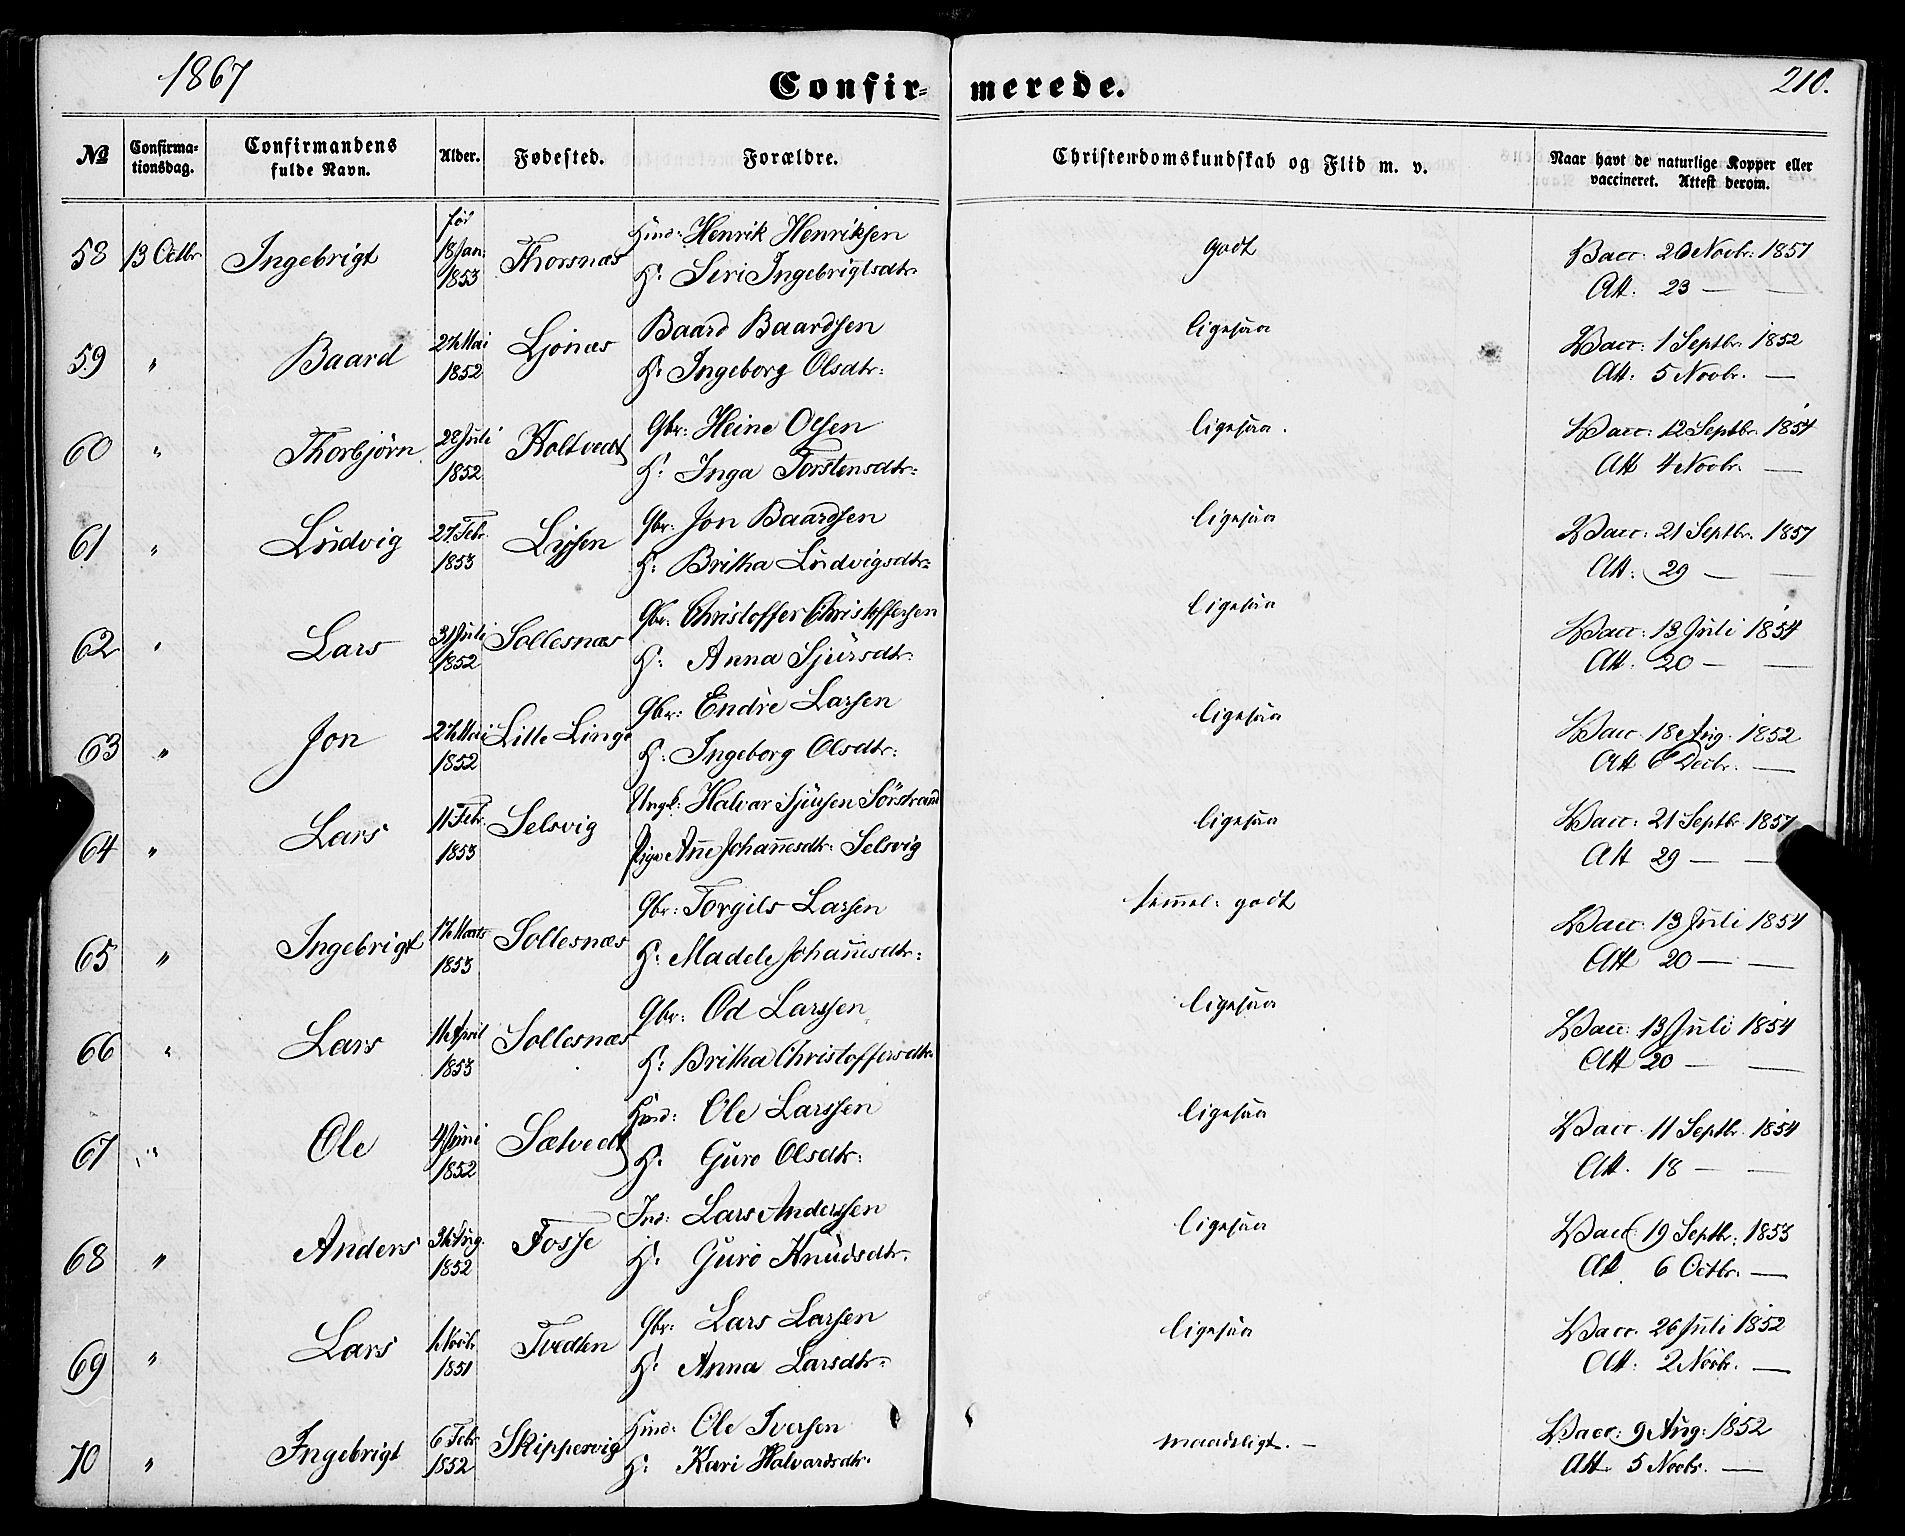 1867
Confir- merede.
210.
№ Confirma-tionsdag. Confirmandens fulde Navn. Alder. Fødested. Forældre. Christendomskundskab og Flid m. v. Naar havt de naturlige Kopper eller vaccineret. Attest derom.
58 13 Octbr Ingebrigt fød 18 Jan: 1853 Thorsnæs Huusd: Henrik Henriksen godt Vacc: 20 Novbr: 1857
H: Seri Ingebrigtsdtr: Att: 23 — —
59 " Baard 27 Mai 1852 Ljonæs Baard Baardsen ligesaa Vacc: 1 Septbr. 1852
H: Ingeborg Olsdtr: Att: 5 Novbr. —
60 " Thorbjörn 28 Juli 1852 Koltvedt Gbr: Heine Olsen ligesaa. Vacc: 12 Septbr. 1854
H: Inga Torstensdtr: Att 4 Novbr. —
61 " Ludvig 27 Febr. 1853 Lyssen Gbr: Jon Baardsen ligesaa Vacc: 21 Septbr. 1857
H: Britha Ludvigsdtr: Att: 29 — —
62 " Lars 31 Juli 1852 Sollesnæs Gbr: Christoffer Christoffersen ligesaa Vacc: 13 Juli 1854
H: Anna Sjursdtr: Att: 20 — —
63 " Jon 27 Mai 1852 Lille Linge Gbr: Endre Larsen ligesaa Vacc. 18 Aug. 1852
H: Ingeborg Olsdtr: Att 6 Decbr. —
64 " Lars 11 Febr. 1853 Selsvig Ungk: Halvar Sjursen Sörstrand ligesaa Vacc: 21 Septbr 1857
Pige Anne Johannesdtr: Selsvig Att 29 — —
65 " Ingebrigt 17 Marts 1853 Sollesnæs Gbr: Torgils Larsen temmel: godt Vacc: 13 Juli 1854
H: Madele Johannesdtr: Att 20 — —
66 " Lars 17 April 1853 Sollesnæs Gbr: Od Larssen ligesaa Vacc: 13 Juli 1854
H: Britha Christoffersdtr. Att 20 — —
67 " Ole 4 Juni 1852 Sætvedt Huusd: Ole Larssen ligesaa Vacc: 11 Septbr. 1854
H: Guro Olsdtr: Att. 18 — —
68 " Anders 31 Aug. 1852 Fosse Ind: Lars Anderssen ligesaa Vacc 19 Septbr: 1853
H: Guro Knudsdtr. Att 6 Octbr. —
69 " Lars 1 Novbr. 1851 Tvedten Gbr: Lars Larsen ligesaa Vacc. 26 Juli 1852
H: Anna Larsdtr: Att: 2 Novbr. —
70 " Ingebrigt 6 Febr 1852 Skippervig Huusd: Ole Iversen maadeligt. — Vacc: 9 Aug: 1852
H: Kari Halvardsdtr. Att. 5 Novbr. —